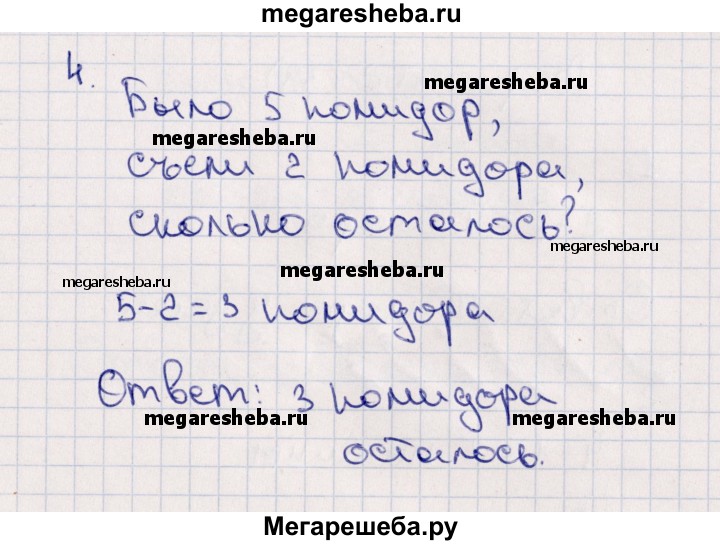 megaresheba.ru
4.
megaresheba.ru
Было 5 помидор,
megaresheba.ru
съели 2 помидора,
сколько осталось?
megaresheba.ru
megaresheba.ru
megaresheba.ru
5-2=3 помидора
Ответ: 3 помидора
megaresheba.ru
megaresheba.ru
осталось.
Мегарешеба.ру